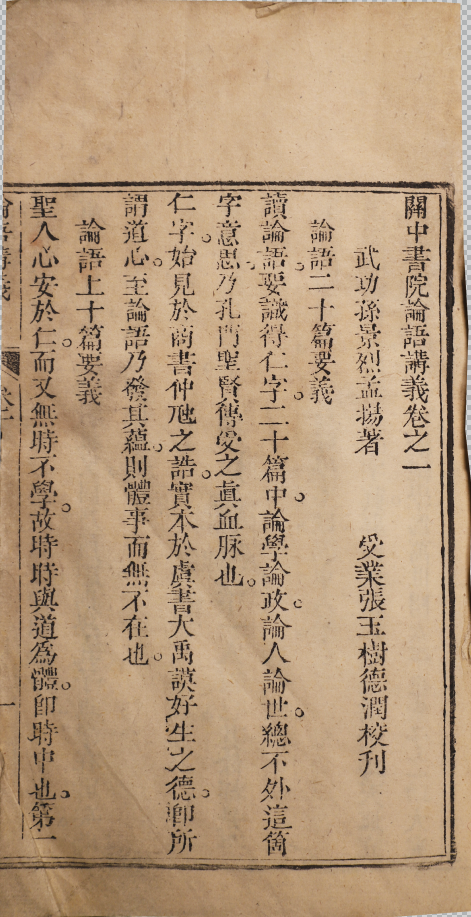 關中書院論語講義卷之一
武功孫景烈孟揚著　受業張玉樹德潤校刋
論語二十篇要義
讀論語要識得仁字二十篇中論學論政論人論世總不外這箇
字意思乃孔門聖賢傳受之眞血脉也
仁字始見於商書仲虺之誥實本於虞書大禹謨好生之德卽所
謂道心至論語乃發其蘊則體事而無不在也
論語上十篇要義
聖人心安於仁而又無時不學故時時與道爲體卽時中也第一